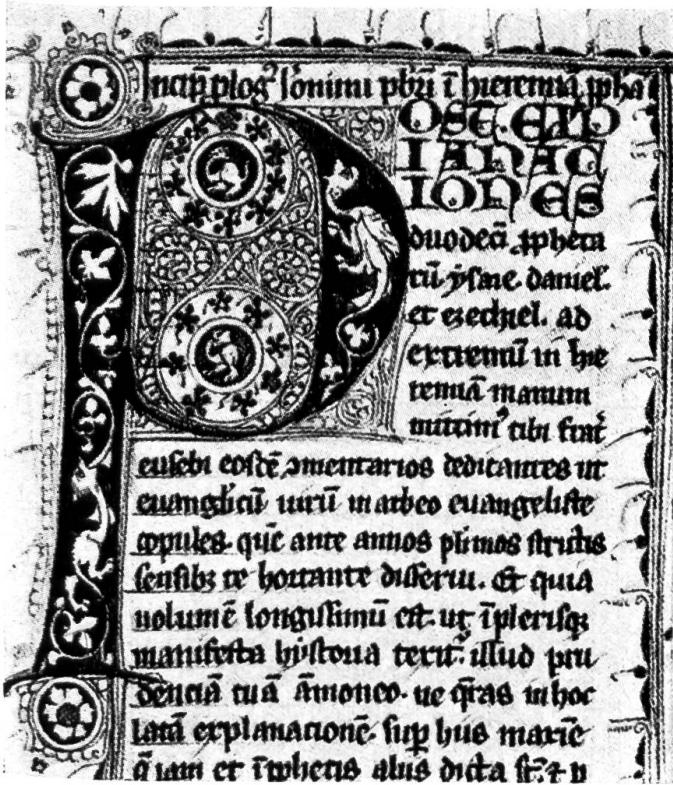 Incip̄ plog᷒ ieronimi pbr̄i ī hieremiā ꝓpha
POST EXP
LANAC
IONES
duodeci ꝓpheta
rū ysaie daniel.
et ezechiel. ad
extremū in hie
remiā manum
mittim᷒ tibi frat̄
eusebi ꝯmentarios dedicantes ut
euanglicū uirū matheo euangeliste
copules. quē ante annos pl̄imos strictis
sensibꝫ te hortante disserui. Et quia
uolumē longissimū est. ut īplerisqꝫ
manifesta hystoria terit᷒. illud pru
denciā tuā āmoneo. ne q̄ras in hoc
latā explanacionē. sup hiis maxīe
q̄ iam et ī ꝓphetis aliis dicta st̄.